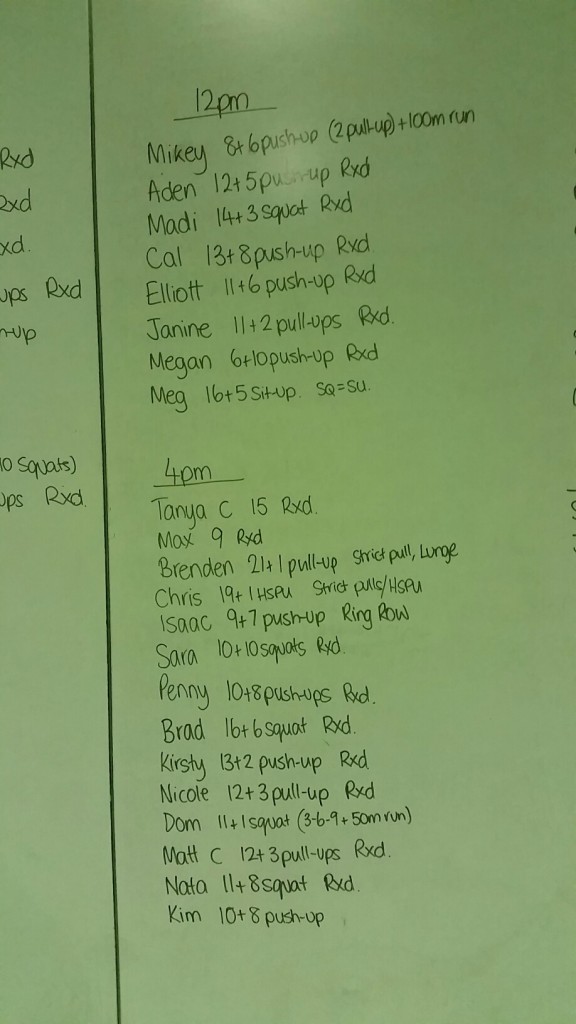 Rxd
Rxd
xd.
ups Rxd
n-up
10 Squats)
ups Rxd.
12pm
Mikey 8+6push-up (2pull-up)+100m run
Aden 12+5push-up Rxd
Madi 14+3 squat Rxd
Cal 13+8push-up Rxd
Elliott 11+6 push-up Rxd
Janine 11+2 pull-ups Rxd.
Megan 6+10push-up Rxd
Meg 16+5 Sit-up. SQ=SU.
4pm
Tanya C 15 Rxd.
Max 9 Rxd
Brenden 21+1 pull-up Strict pull, Lunge
Chris 19+1 HSPU Strict pulls/HSPU
Isaac 9+7 push-up Ring Row
Sara 10+10squats Rxd.
Penny 10+8push-ups Rxd.
Brad 16+6 squat Rxd.
Kirsty 13+2 push-up Rxd
Nicole 12+3 pull-up Rxd
Dom 11+1 squat (3-6-9+50m run)
Matt C 12+3pull-ups Rxd.
Nata 11+8squat Rxd.
Kim 10+8 push-up